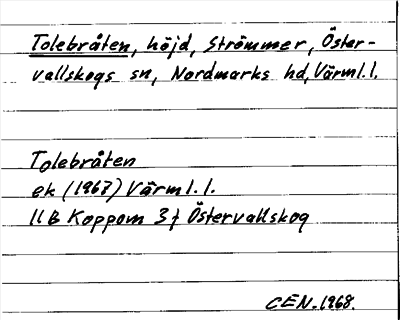 Tolebråten, höjd, Strömmer, Öster-
vallskogs sn, Nordmarks hd, Värml.l.
Tolebråten
ek (1967) Värml.l.
11B Koppom 3f Östervallskog
CEN. 1968.